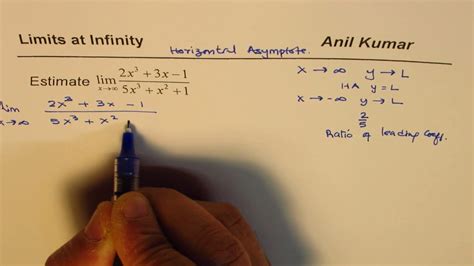 Limits at Infinity
Horizontal Asymptote.
Anil Kumar
Estimate lim x→∞ (2x³ + 3x − 1)/(5x³ + x² + 1)
lim x→∞ (2x³ + 3x − 1)/(5x³ + x²
x → ∞ y → L
HA y = L
x → -∞ y → L
2/5
Ratio of leading Coeff.